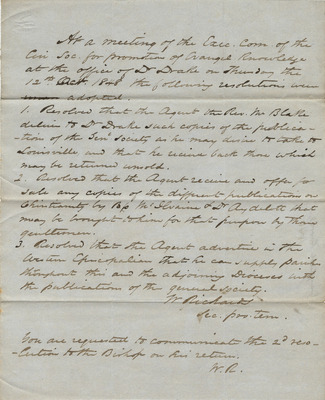 At a meeting of the Exec. Com. of the
Cin Soc. for promotion of Evangel Knowledge
at the office of Dr Drake on Thursday the
12th Oct 1848 the following resolutions were
adopted.
1. Resolved that the Agent the Rev. Mr Blake
deliver to Dr Drake such copies of the publica-
-tion of the Genl Society as he may desire to take to
Louisville and that he receive back those which
may be returned unsold.
2. Resolved that the Agent receive and offer for
sale any copies of the different publications on
Christianity by Bp McIlvaine & Dr Aydelott that
may be brought to him for that purpose by those
gentlemen.
3. Resolved that the Agent advertise in the
Western Episcopalian that he can supply parishes
throughout this and the adjoining Dioceses with
the publications of the general Society.
W Richards
Sec. pro tem.
You are requested to communicate the 2d reso-
-lution to the Bishop on his return.
W. R.